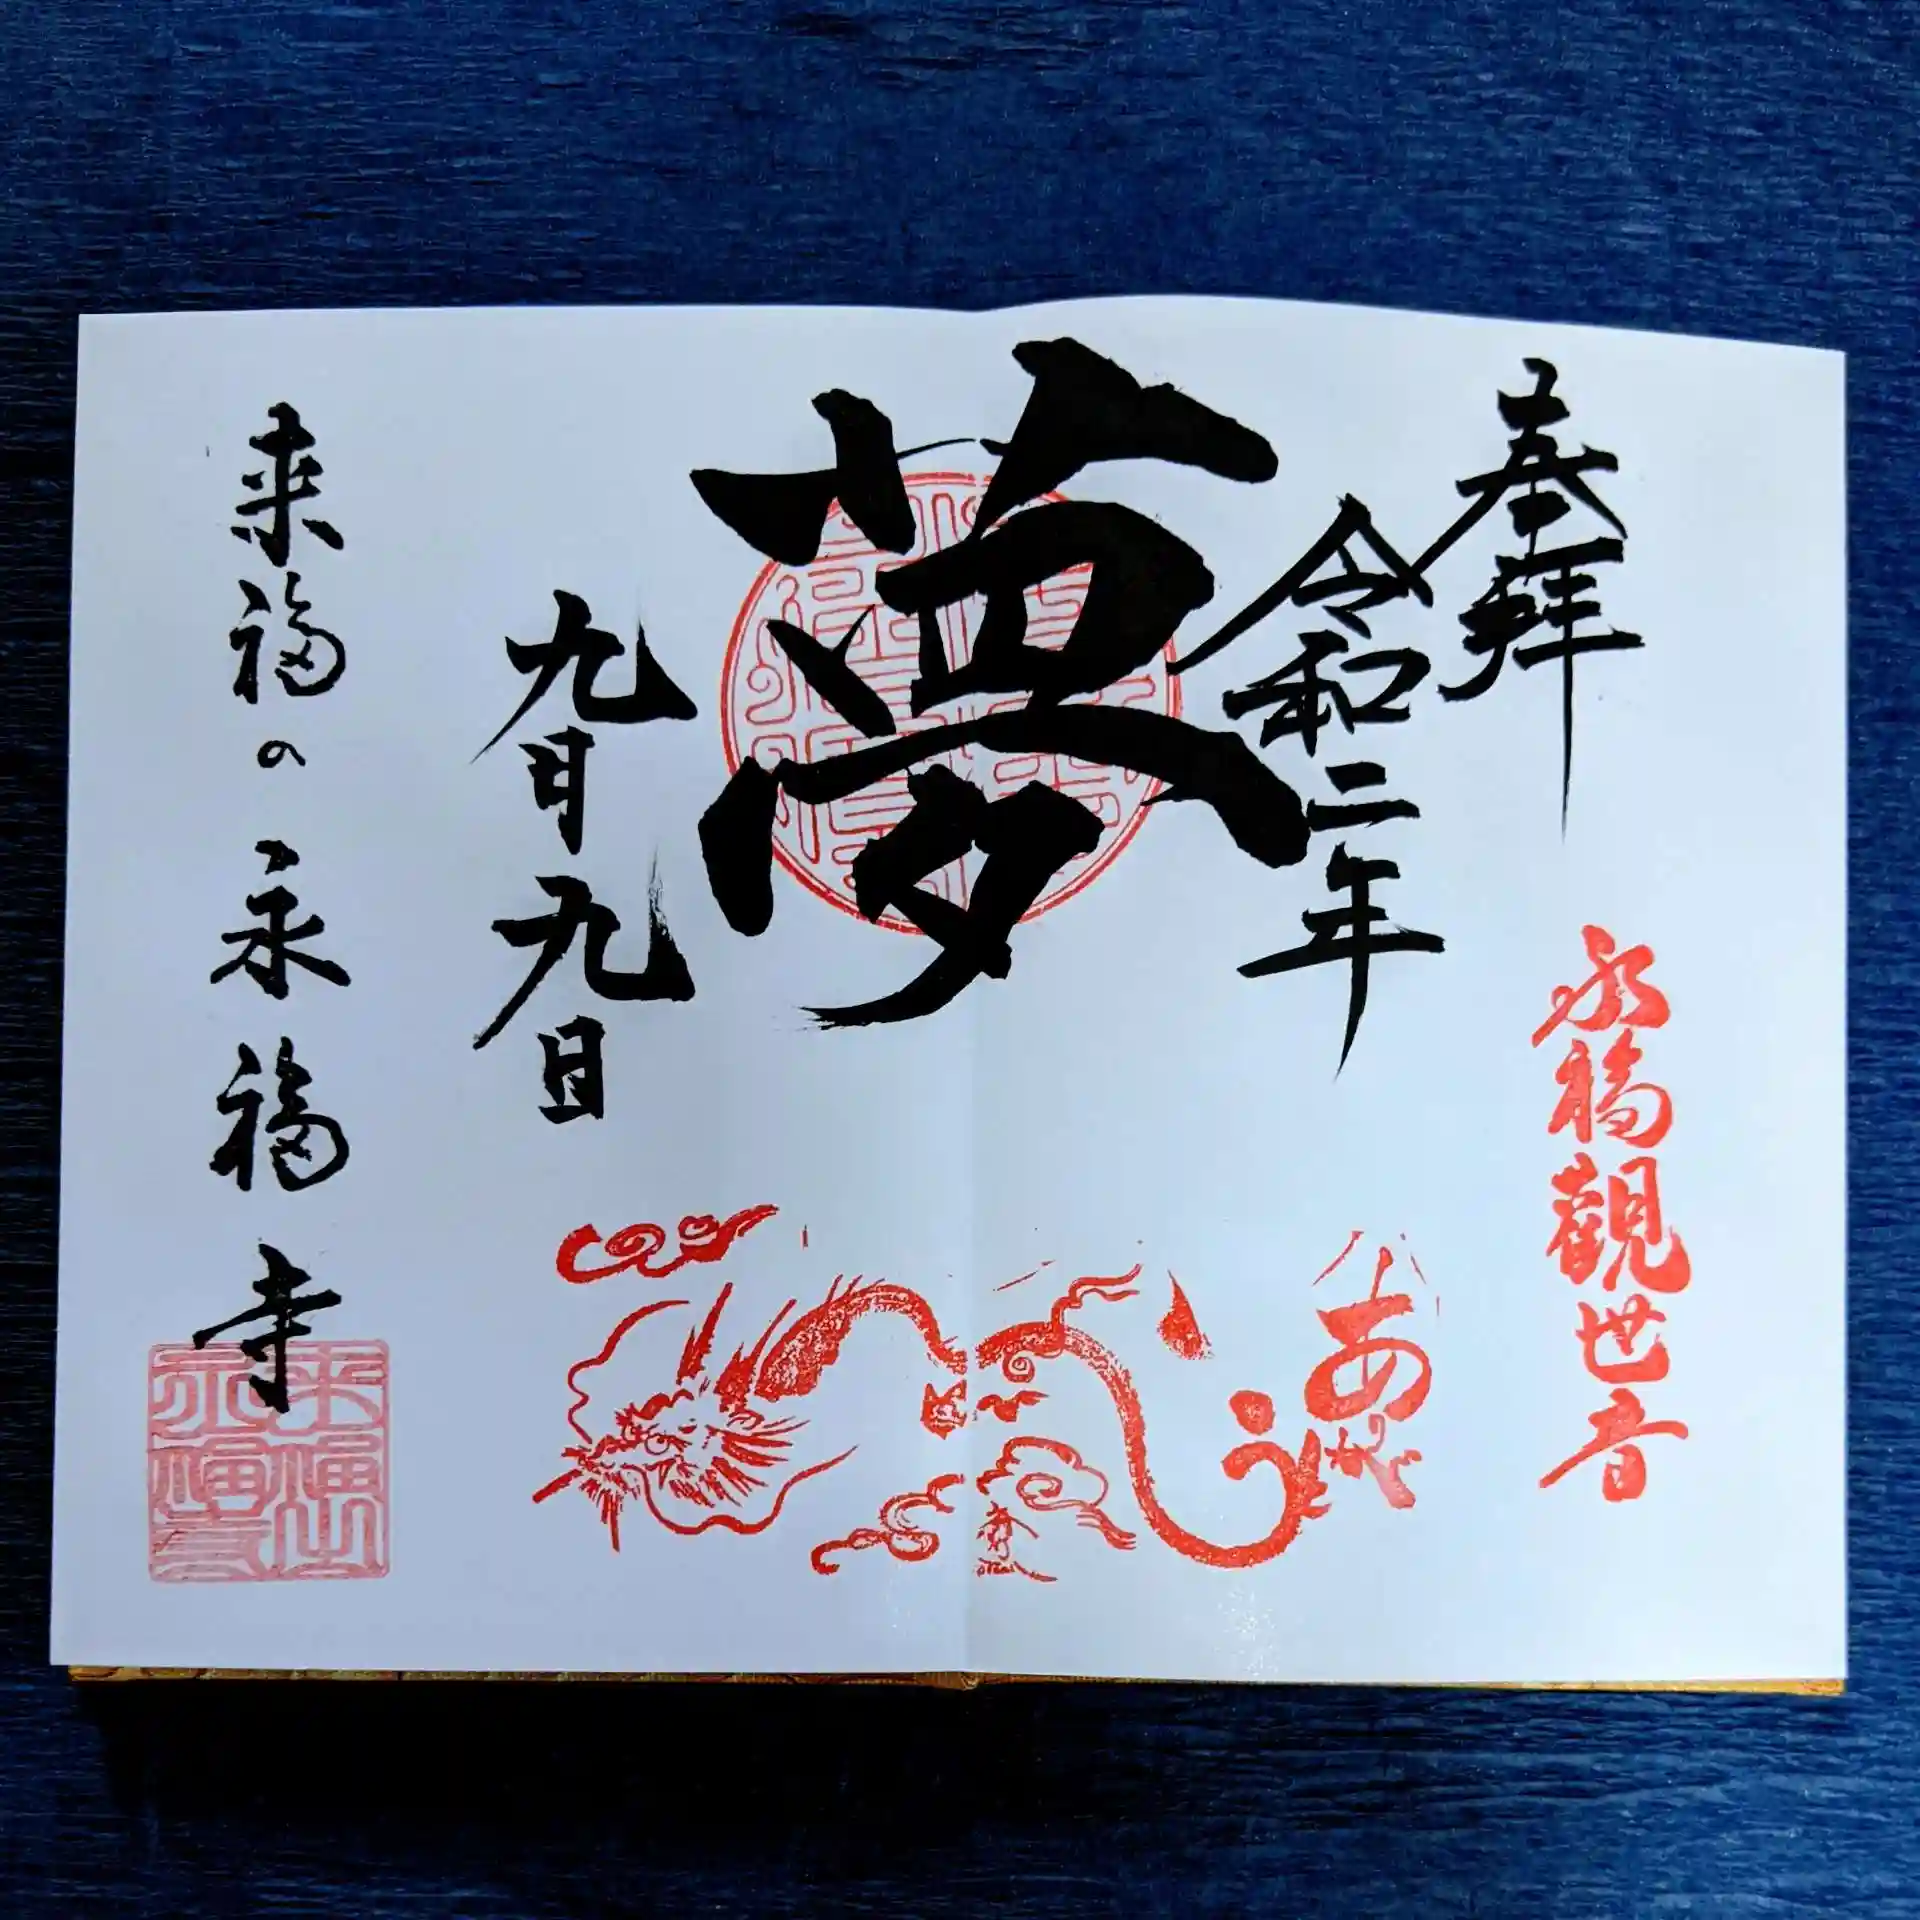 奉拜
永福觀世音
令和二年
夢
九月九日
来福の永福寺
ありがとう